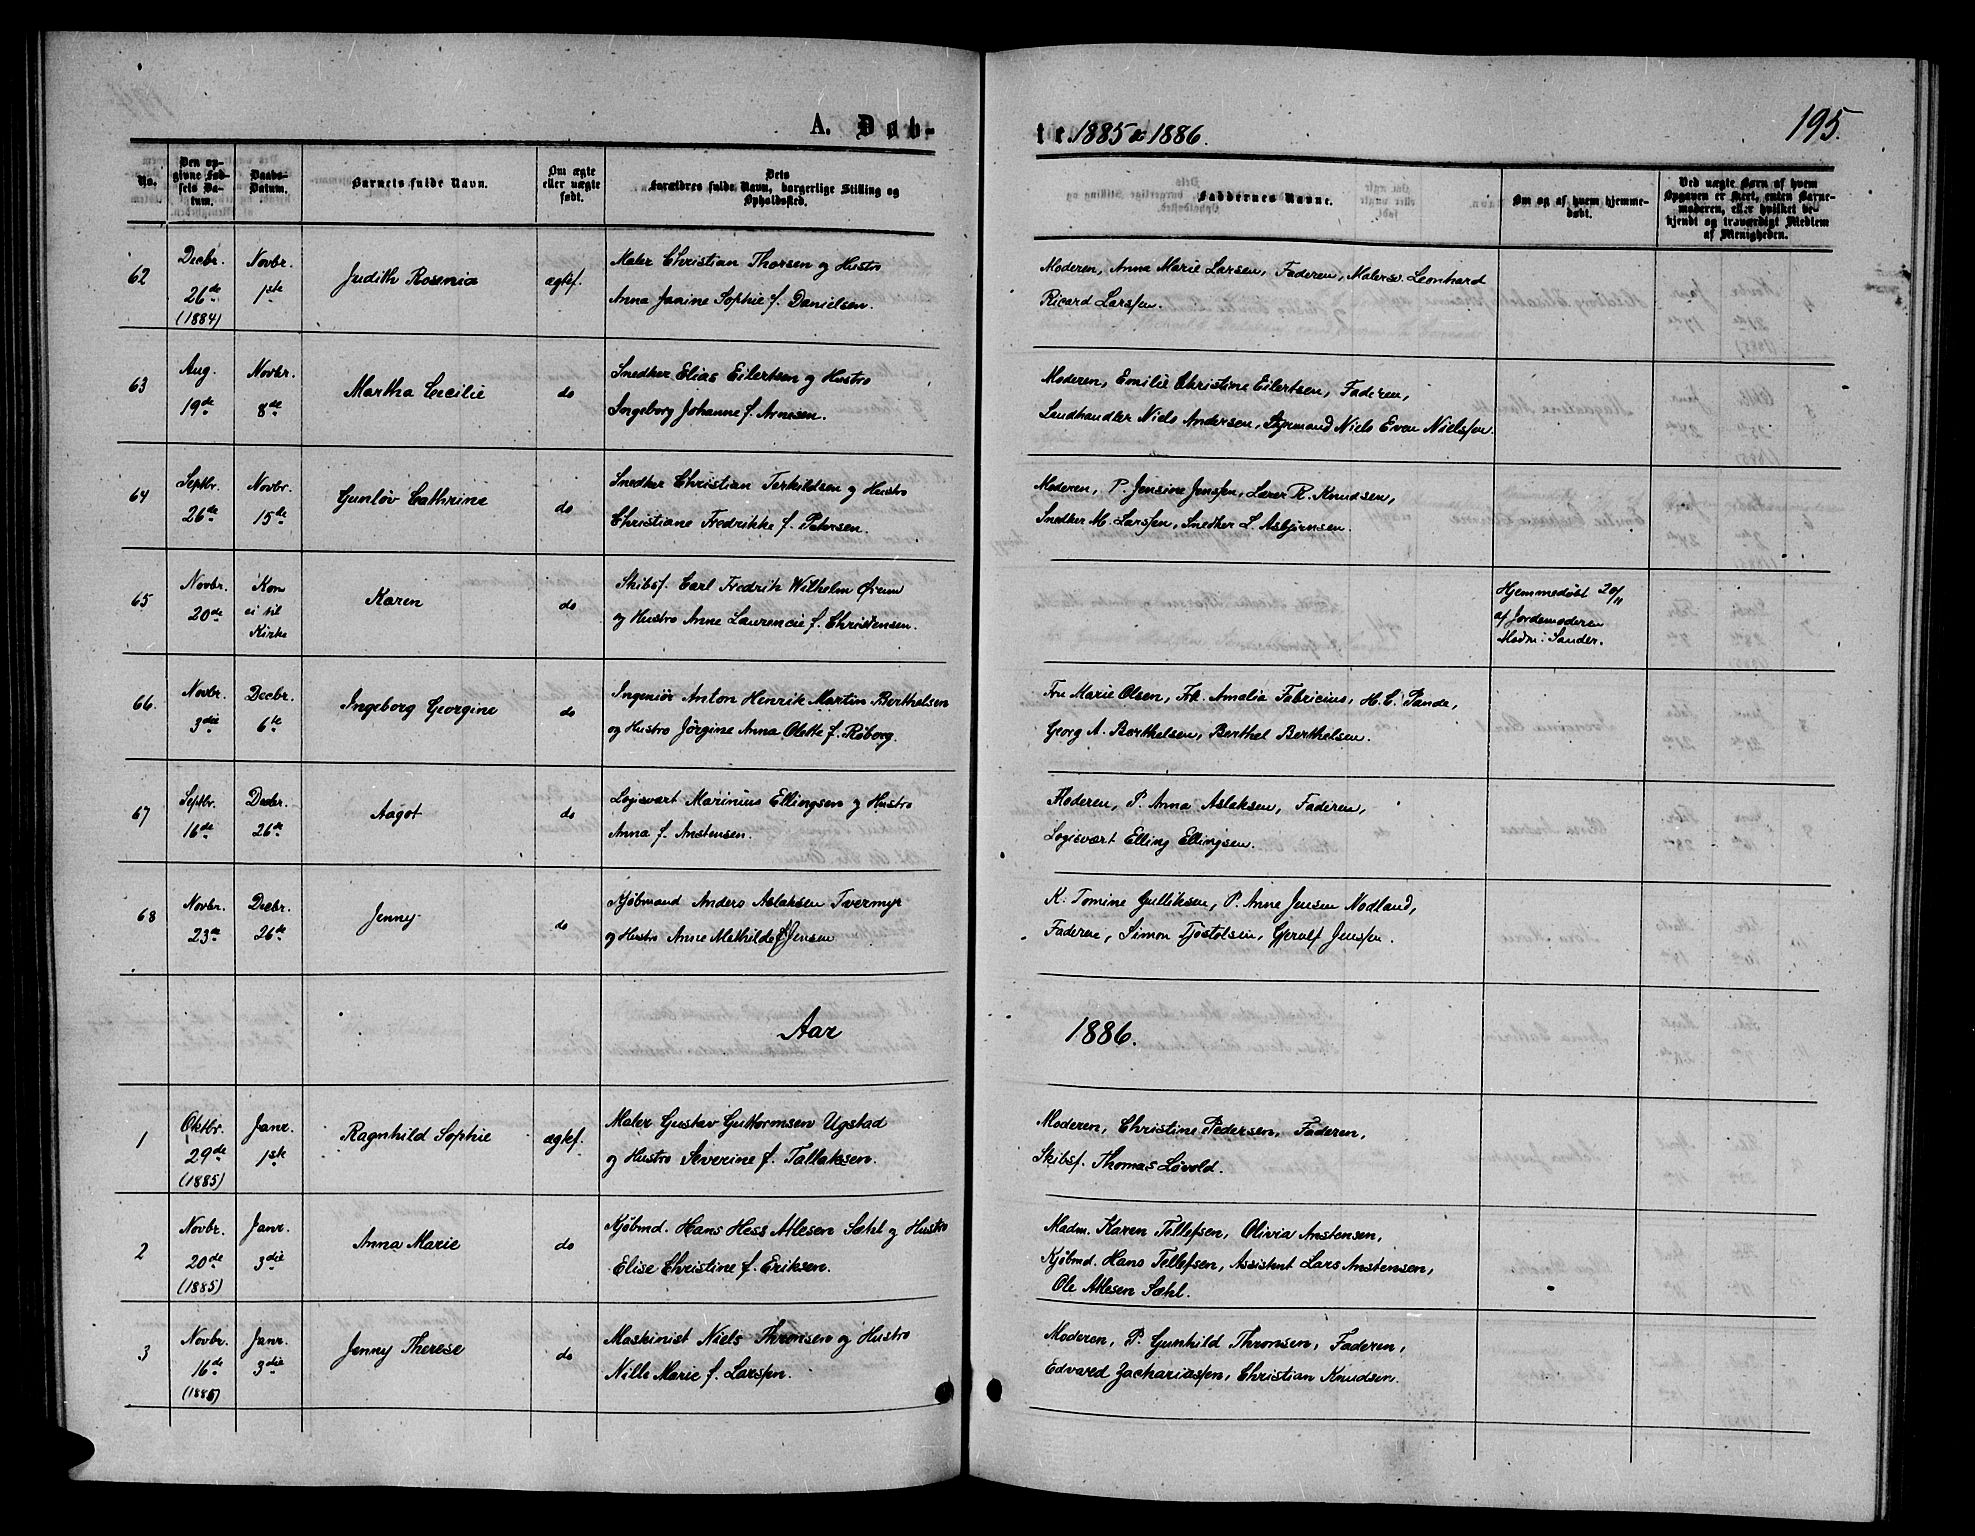 195.
A. Døb-
te. 1885 & 1886.
No.
Den op-
givne Fød-
sels Da-
tum.
Daabs-
Datum.
Barnets fulde Navn.
Om ægte
eller uægte
født.
Dets
Forældres fulde Navn, borgerlige Stilling og
Opholdssted.
Faddernes Navne.
Om og af hvem hjemme-
døbt.
Ved uægte Børn af hvem
Opgaven er skeet, enten Barne-
moderen, eller hvilket be-
kjendt og troværdigt Medlem
af Menigheden.
62
Decbr.
26de
(1884)
Novbr.
1ste
Judith Rosenia
ægtef.
Maler Christian Thorsen og Hustro
Anna Janine Sophie f. Danielsen.
Moderen, Anna Marie Larsen, Faderen, Malersv. Leonhard
Ricard Larssen.
63
Aug.
19de
Novbr.
8de
Martha Cecilie
do
Snedker Elias Eilertsen og Hustro
Ingeborg Johanne f. Arnesen.
Moderen, Emilie Christine Eilertsen, Faderen,
Landhandler Niels Andersen, Styrmand Niels Even Nielssen.
64
Septbr.
26de
Novbr.
15de
Gunløv Cathrine
do
Snedker Christian Terkildsen og Hustro
Christiane Fredrikke f. Petersen.
Moderen, P. Jensine Jenssen, Lærer R. Knudsen,
Snedker M. Larssen, Snedker L. Asbjørnsen.
65
Novbr.
20de
Kom
ei til
Kirke
Karen
do
Skibsf. Carl Fredrik Wilhelm Ørum
og Hustro Anne Laurencie f. Christensen.
Hjemmedøbt 20/11
af Jordemoderen
Madm: Sander.
66.
Novbr.
3die
Decbr.
6te
Ingeborg Georgine
do
Ingeniør Anton Henrik Martin Berthelsen
og Hustro Jørgine Anna Olette f. Røborg.
Fru Marie Olsen, Frk. Amalia Fabricius, H. C. Pande,
Georg A. Berthelsen, Berthel Berthelsen.
67
Septbr.
16de
Decbr.
26de
Aagot
do
Logisvært Marinius Ellingsen og Hustro
Anna f. Anstensen.
Moderen, P. Anna Aslaksen, Faderen,
Logisvært Elling Ellingsen.
68
Novbr.
23de
Decbr.
26de
Jenny
do
Kjøbmand Anders Aslaksen Tvermyr
og Hustro Anne Mathilde f. Jensen
K. Tomine Gulliksen, P. Anne Jensen Nodland,
Faderne, Simon Tjostolsen, Gjerulf Jenssen.
Aar
1886.
1
Oktbr.
29de
(1885)
Janr.
1ste
Ragnhild Sophie
ægtef.
Maler Gustav Guttormsen Ugstad
og Hustro Severine f. Tallaksen.
Moderen, Christine Pedersen, Faderen,
Skibsf. Thomas Løvold.
2
Novbr.
20de
(1885)
Janr.
3die
Anna Marie
do
Kjøbmd. Hans Hess Atlesen Sæhl og Hustro
Elise Christine f. Eriksen.
Madm. Karen Tellefsen, Olivia Anstensen,
Kjøbmd. Hans Tellefsen, Assistent Lars Anstensen,
Ole Atlesen Sæhl.
3
Novbr.
16de
(1885)
Janr.
3die
Jenny Therese
do
Maskinist Niels Thromsen og Hustro
Nille Marie f. Larssen.
Moderen, P. Gunhild Thromsen, Faderen,
Edvard Zachariassen, Christian Knudsen.